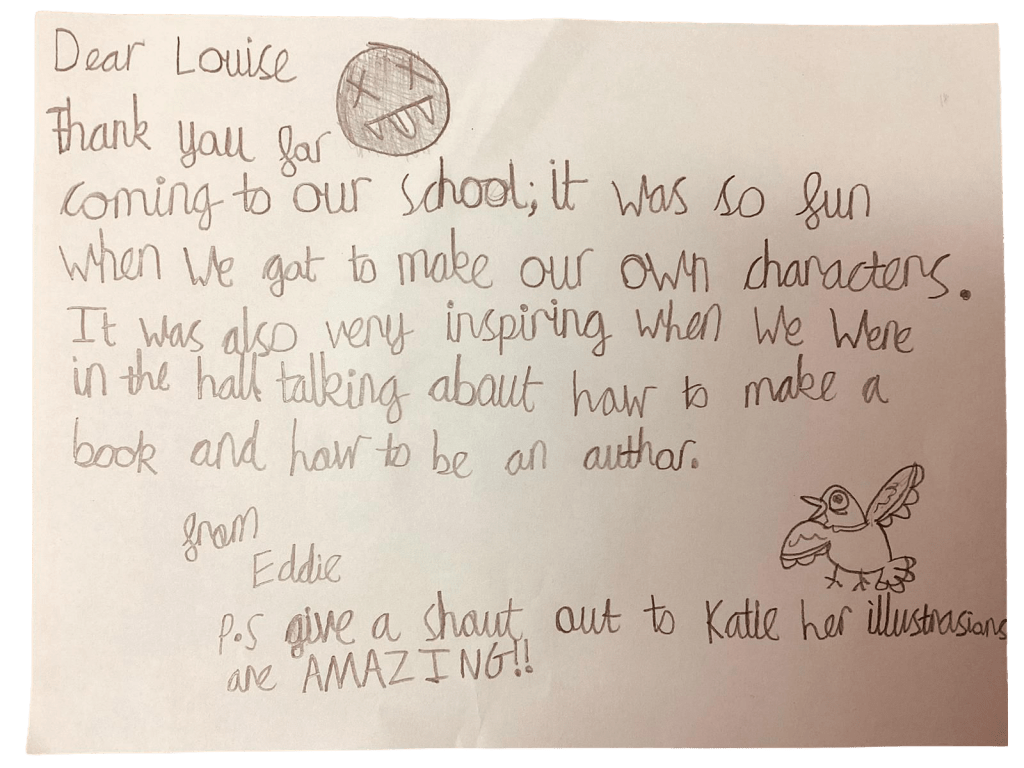 Dear Louise
Thank you for
coming to our school; it was so fun
when we got to make our own characters.
It was also very inspiring when we were
in the hall talking about how to make a
book and how to be an author.
from
Eddie
p.s give a shout out to Katie her illustrasians
are AMAZING!!